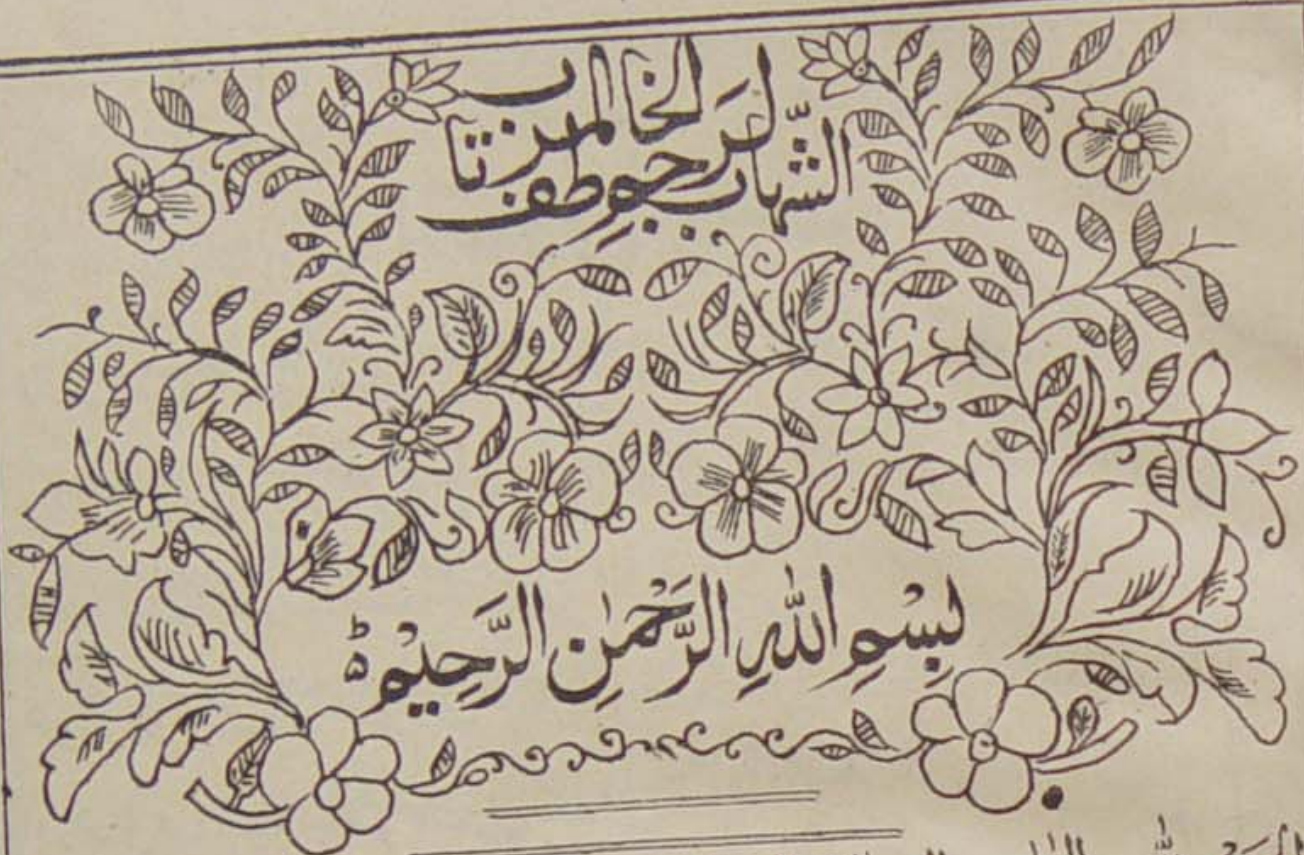 الشّہاب لرَجم الخاطف المرتاب
بِسْمِ اللّٰهِ الرَّحْمٰنِ الرَّحِیْمِ ؕ